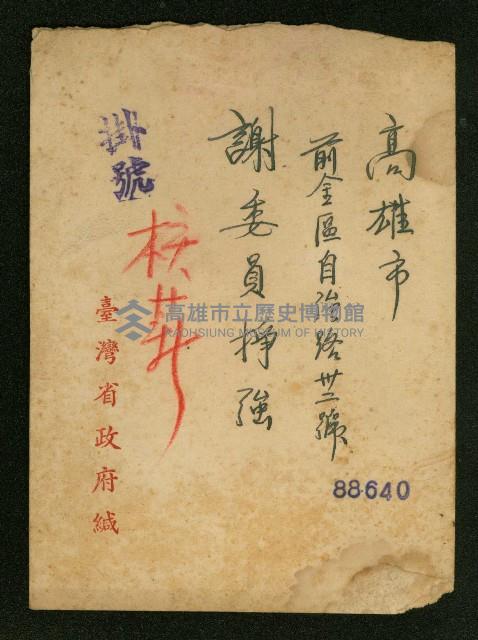 高雄市
前金區自治路卅二號
謝委員掙強
掛號
臺灣省政府緘
88-640
高雄市立歷史博物館
KAOHSIUNG MUSEUM OF HISTORY